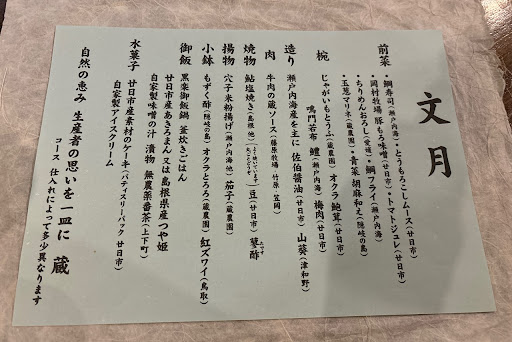 文月
前菜
・鯛寿司（瀬戸内海）・とうもろこしムース（廿日市）
・岡村牧場 豚もろ味噌（廿日市）・トマトジュレ（廿日市）
・ちりめんおろし（愛媛）・鯛フライ（瀬戸内海）
・玉葱マリネ（蔵農園）・青菜 胡麻和え（隠岐の島）
椀 じゃがいもとうふ（蔵農園）オクラ 鮑茸（廿日市）
鳴門若布 鱧（瀬戸内海）梅肉（廿日市）
造り 瀬戸内海産を主に 佐伯醤油（廿日市）山葵（津和野）
肉 牛肉の蔵ソース（藤原牧場 竹原・笠岡）
焼物 鮎塩焼き（島根 他）豆（廿日市）蓼酢
揚物 穴子米粉揚げ（瀬戸内海他）茄子（蔵農園）
小鉢 もずく酢（隠岐の島）オクラとろろ（蔵農園）紅ズワイ（鳥取）
御飯 黒楽御飯鍋 釜炊きごはん
廿日市産あきろまん又は島根県産つや姫
自家製味噌の汁 漬物 無農薬番茶（上下町）
水菓子 廿日市産素材のケーキ（パティスリーパック 廿日市）
自家製アイスクリーム
自然の恵み 生産者の思いを一皿に 蔵
コース 仕入れによって多少異なります